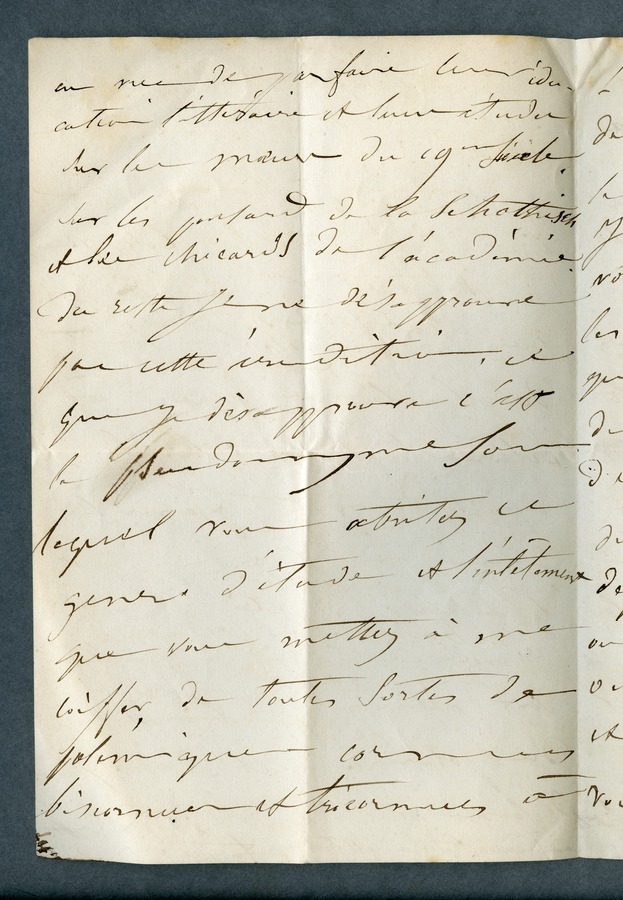 en vue de parfaire leur édu-
cation littéraire et leur étude
sur les mœurs du 19me Siècle.
sur les de la Schottisch
et les chicards de l'académie.
du reste Je ne désapprouve
pas cette érudition, ce
que je désapprouve c'est
le pseudonyme sous
lequel vous abritez ce
genre d'étude et l'entêtement
que vous mettez à me
coiffer de toutes sortes de
polémiques cornues
biscornues et tricornues